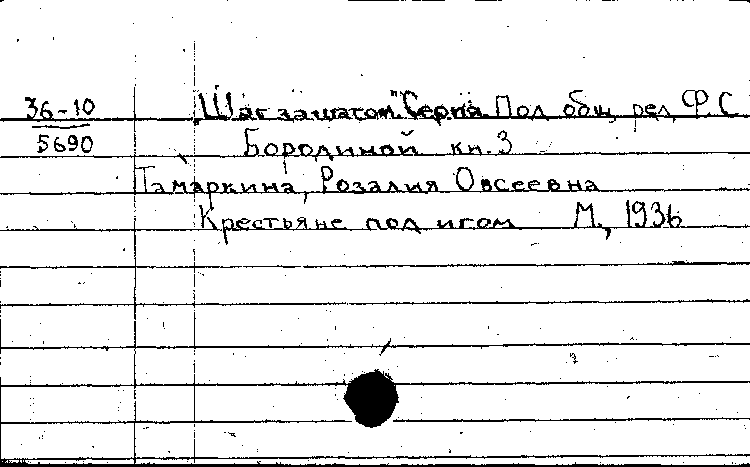 36-10 Шаг за шагом." Серия. Под общ. ред. Ф. С.
5690 Бородиной кн. 3
Тамаркина, Розалия Овсеевна
Крестьяне под игом М., 1936